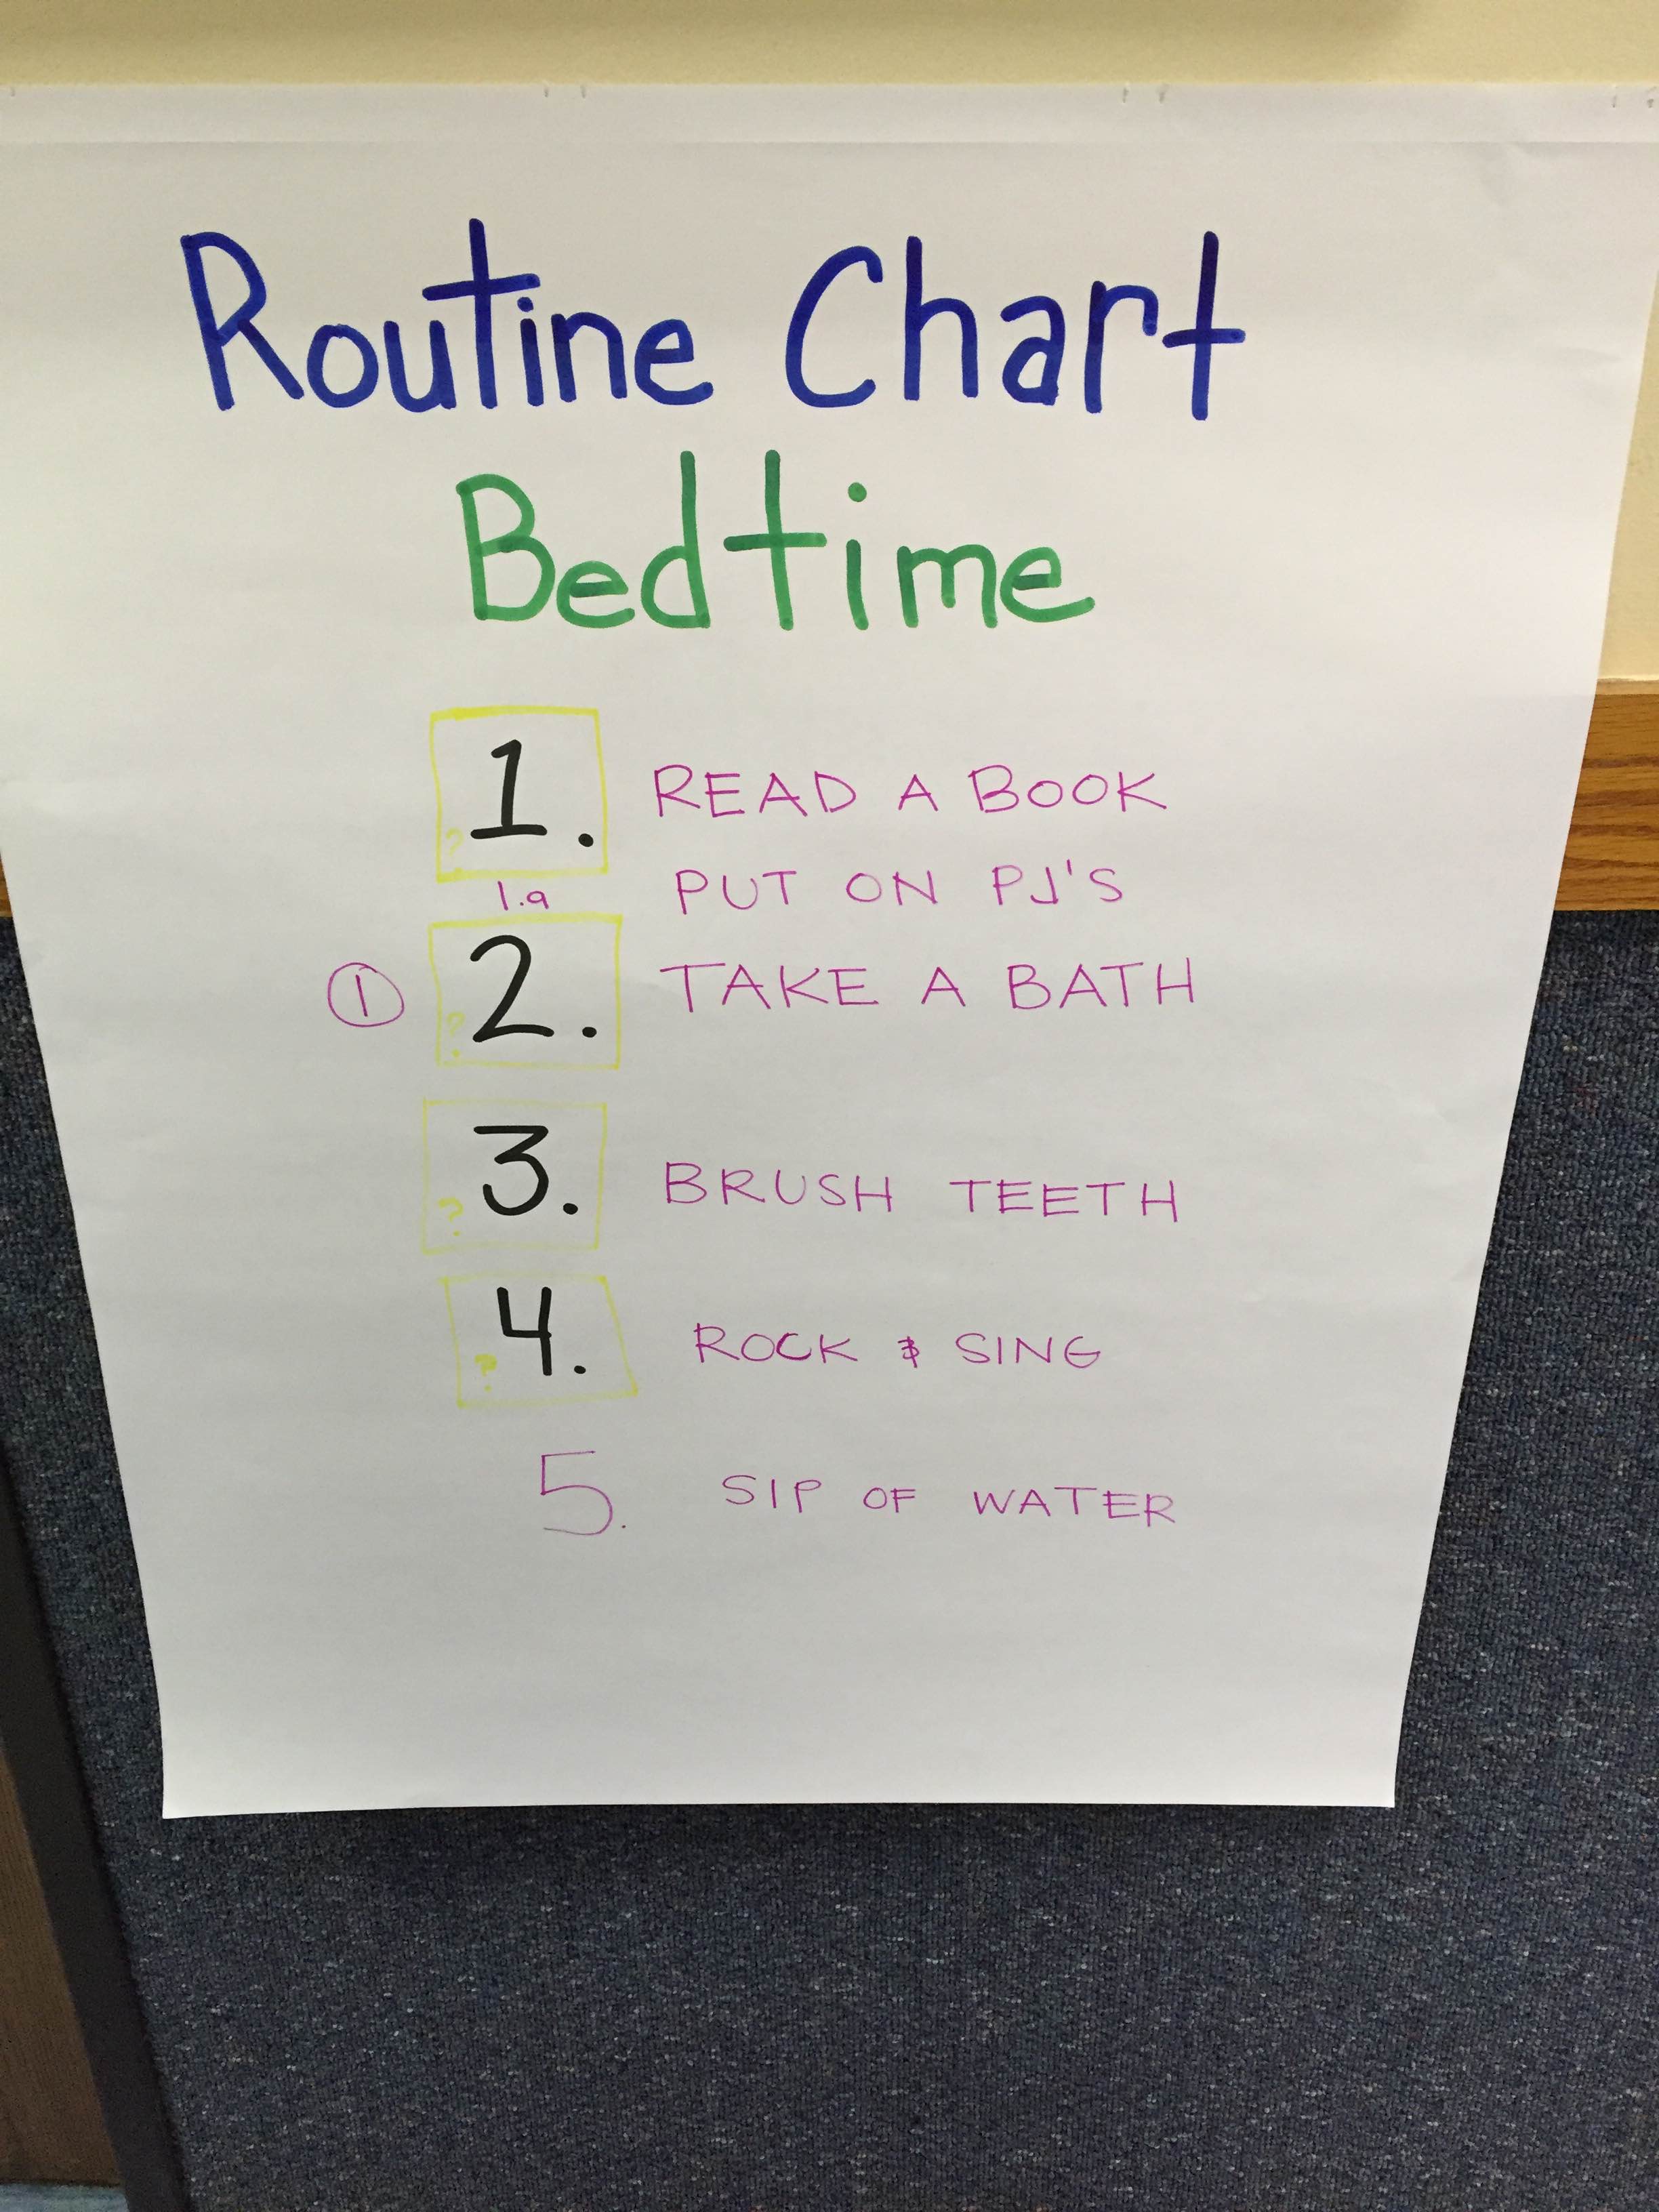 Routine Chart
Bedtime
? 1. READ A BOOK
1.a PUT ON PJ'S
1 ? 2. TAKE A BATH
? 3. BRUSH TEETH
? 4. ROCK & SING
5. SIP OF WATER